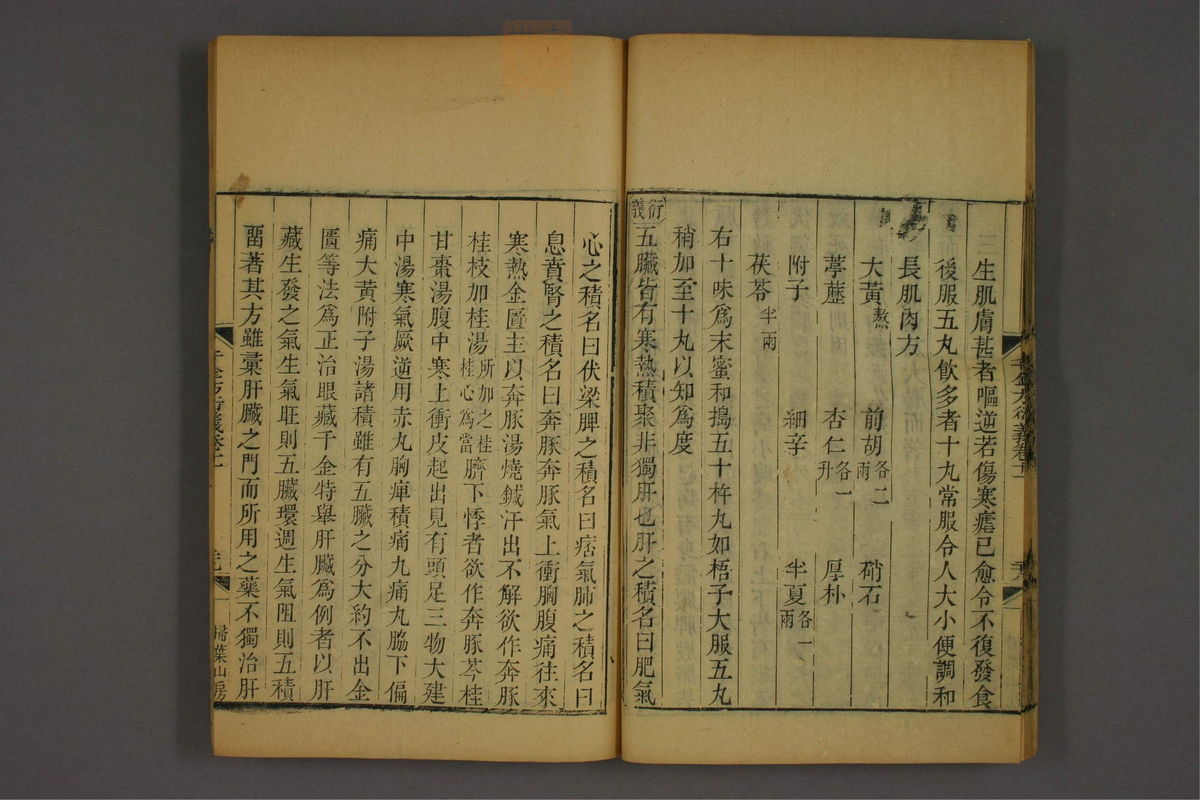 生肌膚甚者嘔逆若傷寒瘧已愈令不復發食
後服五丸飲多者十丸常服令人大小便調和
長肌肉方
大黃熬 前胡各二兩 硝石
葶藶 杏仁各一升 厚朴
附子 細辛 半夏各一兩
茯苓半兩
右十味爲末蜜和搗五十杵丸如梧子大服五丸
稍加至十丸以知爲度
衍義五臟皆有寒熱積聚非獨肝也肝之積名曰肥氣
心之積名曰伏梁脾之積名曰痞氣肺之積名曰
息賁腎之積名曰奔豚奔豚氣上衝胸腹痛往來
寒熱金匱主以奔豚湯燒鍼汗出不解欲作奔豚
桂枝加桂湯所加之桂桂心爲當臍下悸者欲作奔豚苓桂
甘棗湯腹中寒上衝皮起出見有頭足三物大建
中湯寒氣厥逆用赤丸胸痺積痛九痛丸脇下偏
痛大黃附子湯諸積雖有五臟之分大約不出金
匱等法爲正治眼藏千金特舉肝臟爲例者以肝
藏生發之氣生氣旺則五臟環週生氣阻則五積
畱著其方雖彙肝臟之門而所用之藥不獨治肝
千金方衍義卷十一
掃葉山房